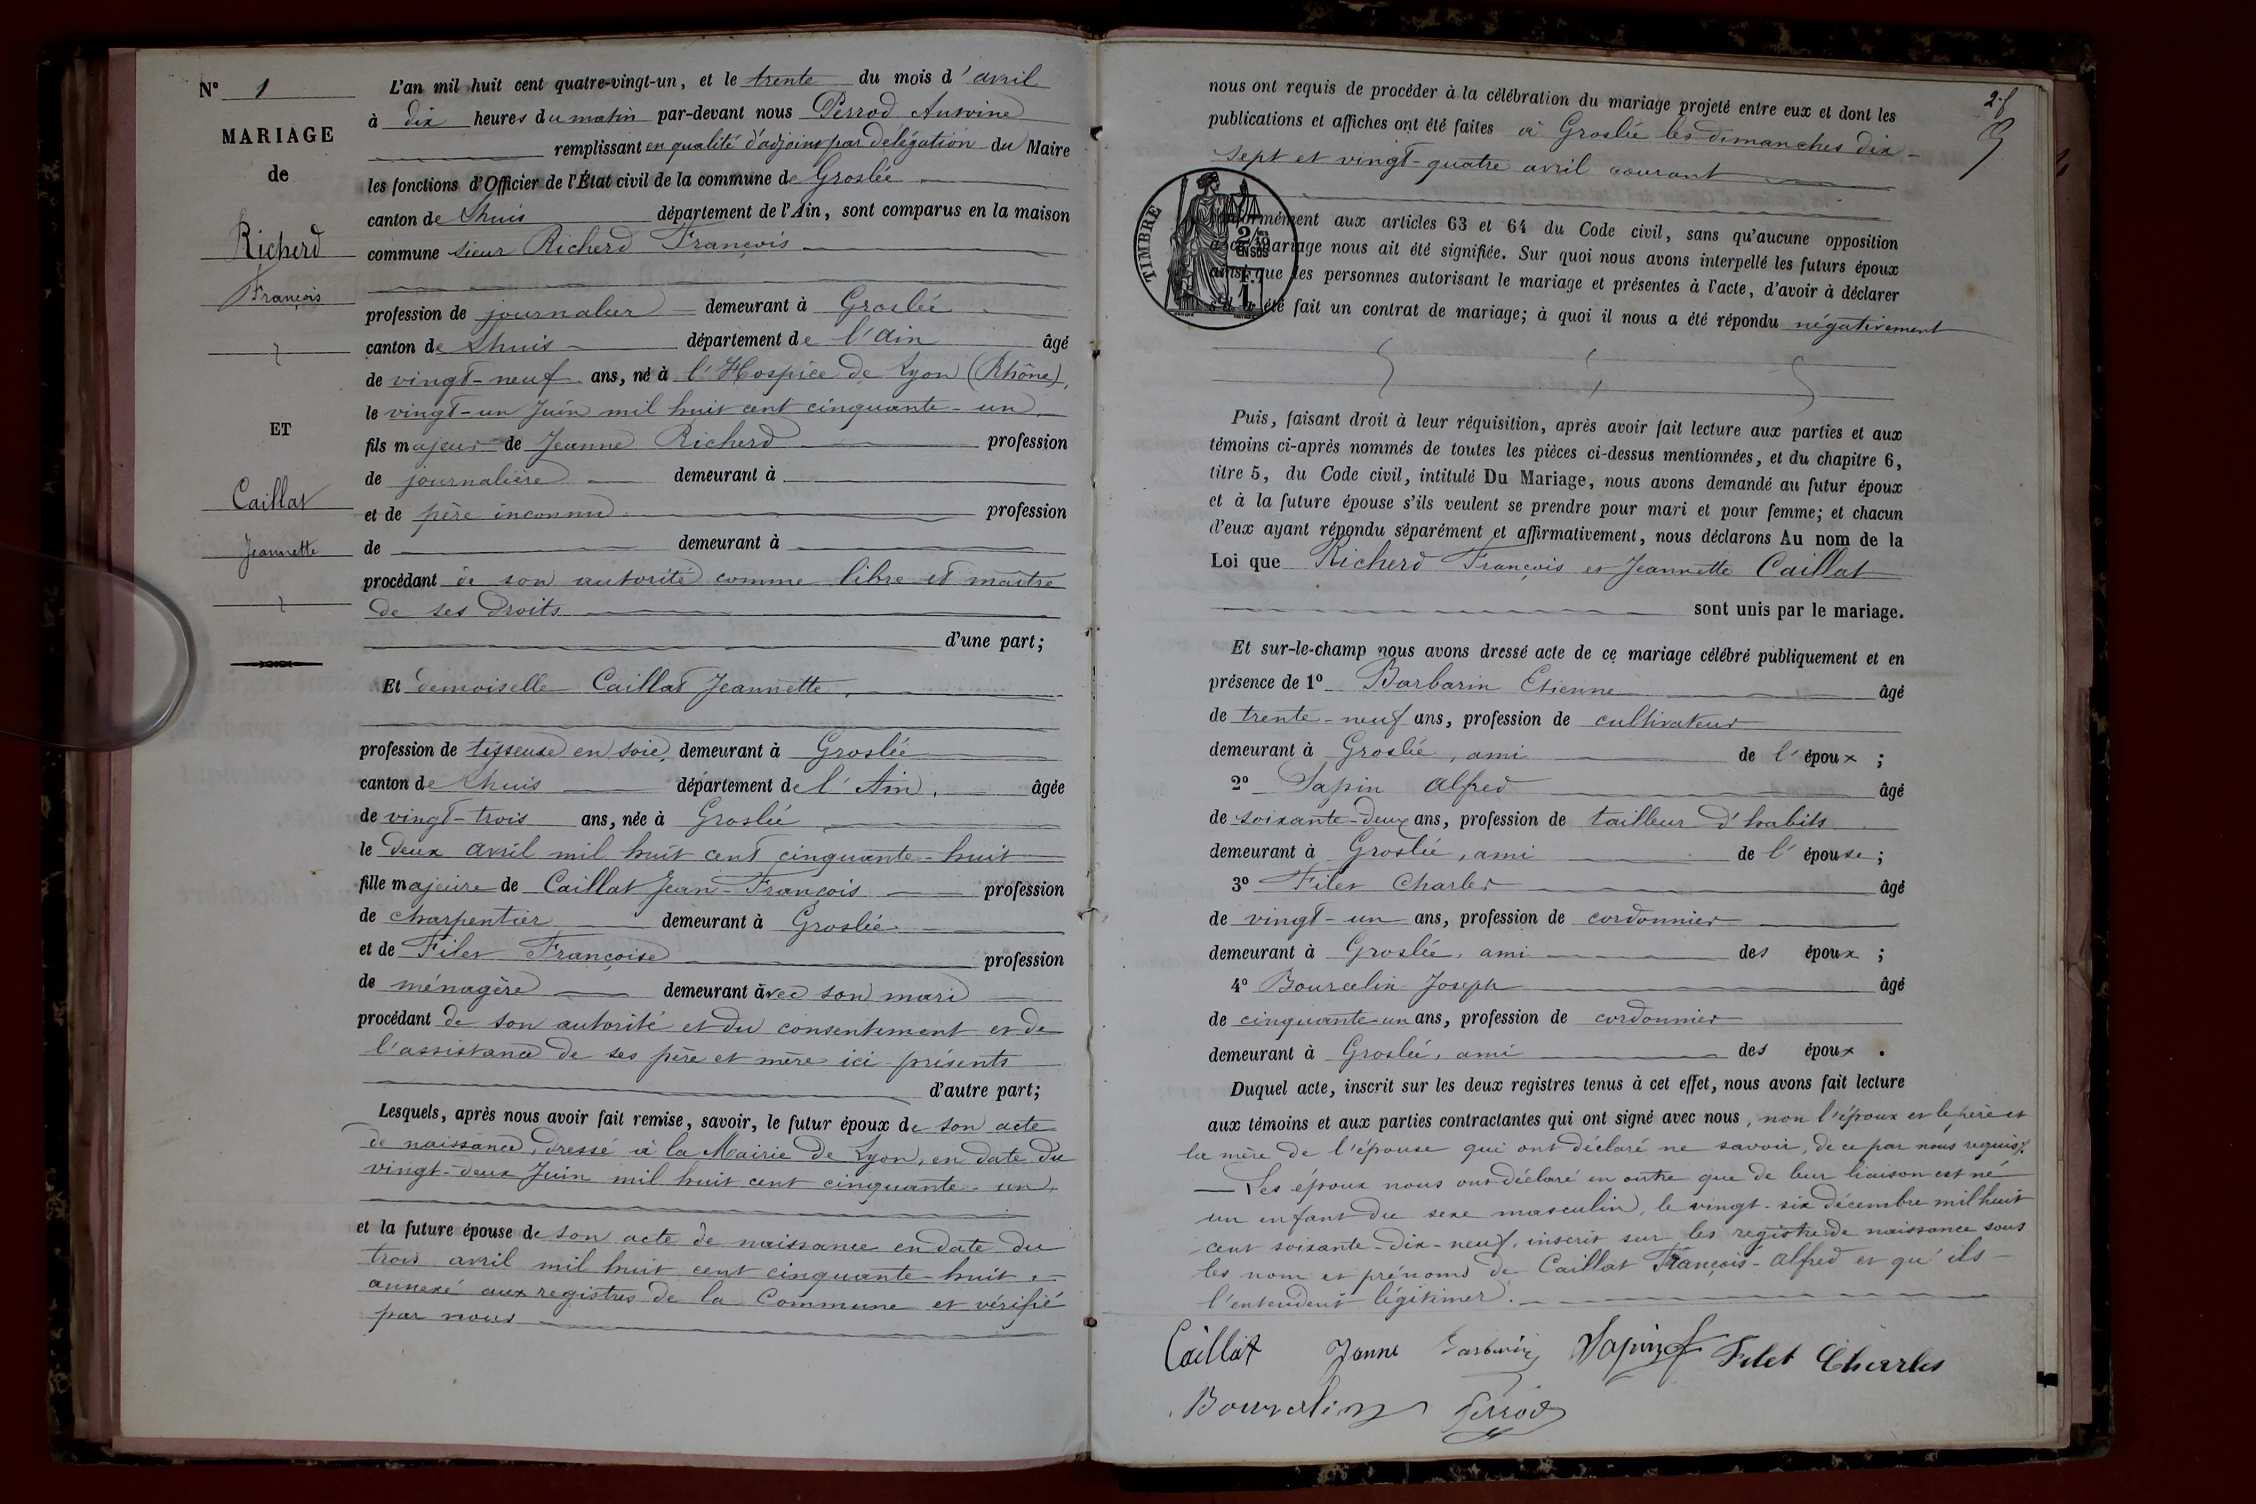 N° 1
MARIAGE
de
Richerd
François
ET
Caillat
Jeannette
L'an mil huit cent quatre-vingt-un, et le trente du mois d'avril
à dix heures du matin par-devant nous Perrod Antoine
remplissant en qualité d'adjoint par délégation du Maire
les fonctions d'Officier de l'État civil de la commune de Groslée
canton de Lhuis département de l'Ain, sont comparus en la maison
commune sieur Richerd François
profession de journalier demeurant à Groslée
canton de Lhuis département de l'Ain âgé
de vingt-neuf ans, né à l'Hospice de Lyon (Rhône),
le vingt-un Juin mil huit cent cinquante-un
fils majeur de Jeanne Richerd profession
de journalière demeurant à
et de père inconnu profession
de demeurant à
procédant de son autorité comme libre et maître
de ses droits
d'une part;
Et demoiselle Caillat Jeannette,
profession de tisseuse en soie, demeurant à Groslée
canton de Lhuis département de l'Ain, âgée
de vingt-trois ans, née à Groslée
le deux avril mil huit cent cinquante-huit
fille majeure de Caillat Jean-François profession
de charpentier demeurant à Groslée
et de Filet Françoise profession
de ménagère demeurant avec son mari
procédant de son autorité et du consentement et de
l'assistance de ses père et mère ici présents
d'autre part;
Lesquels, après nous avoir fait remise, savoir, le futur époux de son acte
de naissance, dressé à la Mairie de Lyon, en date du
vingt-deux Juin mil huit cent cinquante-un,
et la future épouse de son acte de naissance en date du
trois avril mil huit cent cinquante-huit,
annexé aux registres de la Commune et vérifié
par nous
2f
nous ont requis de procéder à la célébration du mariage projeté entre eux et dont les
publications et affiches ont été faites à Groslée les dimanches dix-
sept et vingt-quatre avril courant
TIMBRE
2/10 EN SUS
1 F.
conformément aux articles 63 et 64 du Code civil, sans qu'aucune opposition
audit mariage nous ait été signifiée. Sur quoi nous avons interpellé les futurs époux
ainsi que les personnes autorisant le mariage et présentes à l'acte, d'avoir à déclarer
s'il a été fait un contrat de mariage; à quoi il nous a été répondu négativement
Puis, faisant droit à leur réquisition, après avoir fait lecture aux parties et aux
témoins ci-après nommés de toutes les pièces ci-dessus mentionnées, et du chapitre 6,
titre 5, du Code civil, intitulé Du Mariage, nous avons demandé au futur époux
et à la future épouse s'ils veulent se prendre pour mari et pour femme; et chacun
d'eux ayant répondu séparément et affirmativement, nous déclarons Au nom de la
Loi que Richerd François et Jeannette Caillat
sont unis par le mariage.
Et sur-le-champ nous avons dressé acte de ce mariage célébré publiquement et en
présence de 1° Barbarin Etienne âgé
de trente-neuf ans, profession de cultivateur
demeurant à Groslée, ami de l'époux;
2° Sapin Alfred âgé
de soixante-deux ans, profession de tailleur d'habits
demeurant à Groslée, ami de l'épouse;
3° Filet Charles âgé
de vingt-un ans, profession de cordonnier
demeurant à Groslée, ami des époux;
4° Bourcelin Joseph âgé
de cinquante-un ans, profession de cordonnier
demeurant à Groslée, ami des époux.
Duquel acte, inscrit sur les deux registres tenus à cet effet, nous avons fait lecture
aux témoins et aux parties contractantes qui ont signé avec nous, non l'époux et le père et
la mère de l'épouse qui ont déclaré ne savoir, de ce par nous requis.
Les époux nous ont déclaré en outre que de leur liaison est né
un enfant du sexe masculin, le vingt-six décembre mil huit
cent soixante-dix-neuf, inscrit sur les registre de naissance sous
les nom et prénoms de Caillat François-Alfred et qu'ils
l'entendent légitimer.
Caillat Janne Barbarin Sapin Filet Charles
Bourcelin Perrod